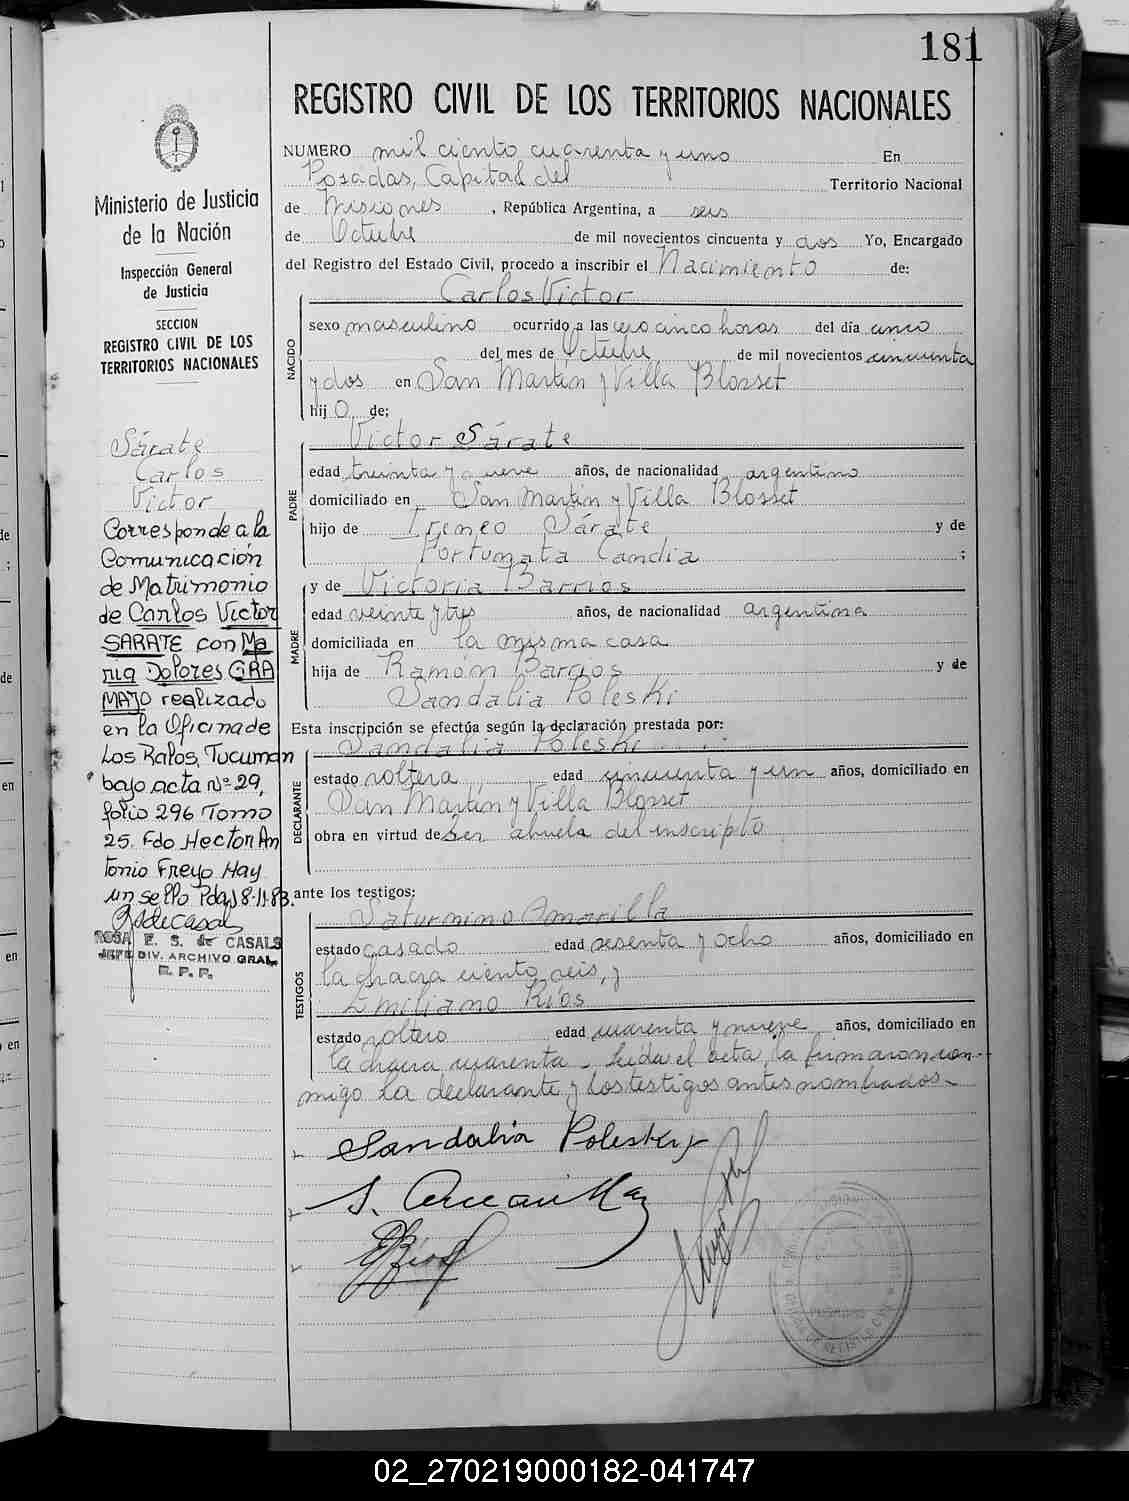 181
REGISTRO CIVIL DE LOS TERRITORIOS NACIONALES
Ministerio de Justicia
de la Nación
Inspección General
de Justicia
SECCION
REGISTRO CIVIL DE LOS
TERRITORIOS NACIONALES
Sárate
Carlos
Victor
Corresponde a la
Comunicación
de Matrimonio
de Carlos Victor
SARATE con Ma
ria Dolores GRA
MAJO realizado
en la Oficina de
Los Ralos, Tucuman
bajo acta Nº 29,
folio 296 Tomo
25. Fdo Hector An
tonio Freyo Hay
un sello Pdas 8-11-83.
ROSA E. S. de CASALS
JEFE DIV. ARCHIVO GRAL.
R. P. P.
NUMERO mil ciento cuarenta y uno En
Posadas, Capital del Territorio Nacional
de Misiones, República Argentina, a seis
de Octubre de mil novecientos cincuenta y dos Yo, Encargado
del Registro del Estado Civil, procedo a inscribir el Nacimiento de:
Carlos Victor
NACIDO
sexo masculino ocurrido a las cero cinco horas del día cinco
del mes de Octubre de mil novecientos cincuenta
y dos en San Martin y Villa Blosset
hijo de;
Victor Sárate
PADRE
edad treinta y nueve años, de nacionalidad argentino
domiciliado en San Martin y Villa Blosset
hijo de Ireneo Sárate y de
Fortunata Candia ;
y de Victoria Barrios
MADRE
edad veinte y tres años, de nacionalidad argentina
domiciliada en la misma casa
hija de Ramón Barrios y de
Sandalia Poleski
Esta inscripción se efectúa según la declaración prestada por:
Sandalia Poleski
DECLARANTE
estado soltera edad cincuenta y un años, domiciliado en
San Martin y Villa Blosset
obra en virtud de ser abuela del inscripto
ante los testigos:
Saturnino Amarilla
TESTIGOS
estado casado edad sesenta y ocho años, domiciliado en
la chacra ciento seis, y
Emiliano Ríos
estado soltero edad cuarenta y nueve años, domiciliado en
la chacra cuarenta - Leída el acta, la firmaron con-
migo la declarante y los testigos antes nombrados -
Sandalia Polesky
S. Amarilla
02_270219000182-041747